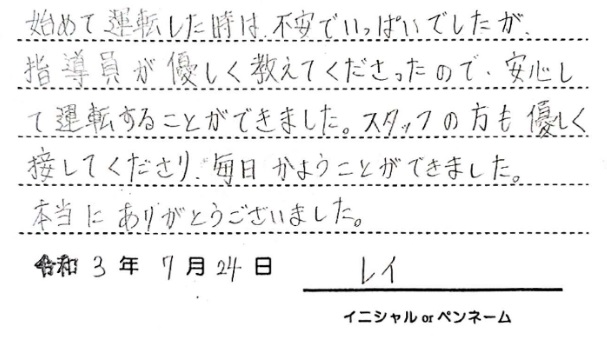 始めて運転した時は、不安でいっぱいでしたが、
指導員が優しく教えてくださったので、安心し
て運転することができました。スタッフの方も優しく
接してくださり、毎日かようことができました。
本当にありがとうございました。
令和3年7月24日 レイ
イニシャル or ペンネーム